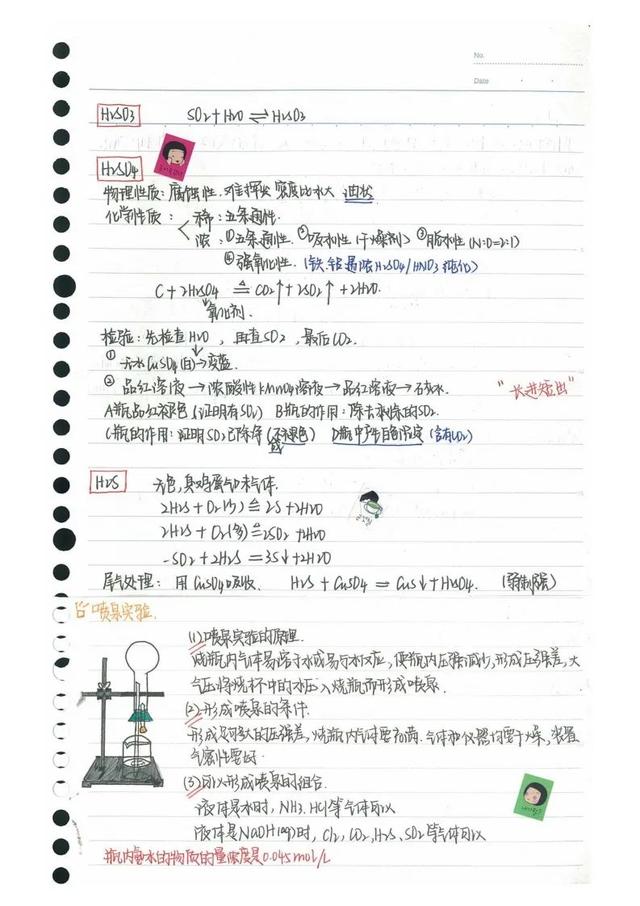 No.
Date
H₂SO₃ SO₂+H₂O⇌H₂SO₃
H₂SO₄
物理性质：腐蚀性．难挥发 密度比水大 油状
化学性质： 稀：五条通性．
浓：①五条通性．②吸水性（干燥剂）③脱水性（H:O=2:1）
④强氧化性．（铁、铝遇浓H₂SO₄/HNO₃钝化）
C+2H₂SO₄ ≜ CO₂↑+2SO₂↑+2H₂O.
氧化剂.
检验：先检查H₂O，再查SO₂，最后CO₂.
①无水CuSO₄(白)→变蓝.
②品红溶液→浓酸性KMnO₄溶液→品红溶液→石灰水. "长进短出"
A瓶品红褪色（证明有SO₂） B瓶的作用：除去 的SO₂.
C瓶的作用：证明SO₂已除净（不褪色） D瓶中产生白色沉淀（含有CO₂）
H₂S 无色,臭鸡蛋气味气体.
2H₂S+O₂(少)≜2S+2H₂O
2H₂S+O₂(多)≜2SO₂+2H₂O
SO₂+2H₂S=3S↓+2H₂O
尾气处理：用CuSO₄吸收． H₂S+CuSO₄=CuS↓+H₂SO₄. （弱制强）
喷泉实验.
(1)喷泉实验的原理.
烧瓶内气体易溶于水或易与水反应，使瓶内压强减少,形成压强差,大
气压将烧杯中的水压入烧瓶而形成喷泉.
(2)形成喷泉的条件.
形成足够大的压强差，烧瓶内气体要充满.气体和仪器均要干燥,装置
气密性要好.
(3)可以形成喷泉的组合.
液体是水时，NH₃. HCl等气体可以
液体是NaOH(aq)时，Cl₂, CO₂, H₂S、SO₂等气体可以
瓶内氨水的物质的量浓度是0.045mol/L